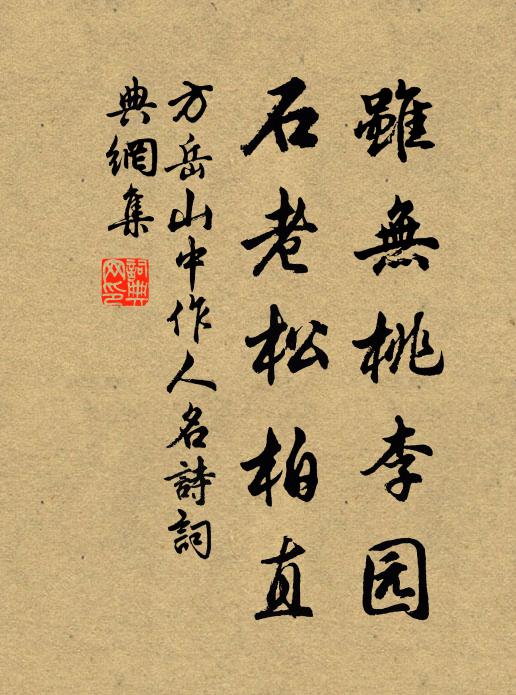 雖無桃李园
石老松柏直
方岳山中作人名詩詞
典網集
詞典网印